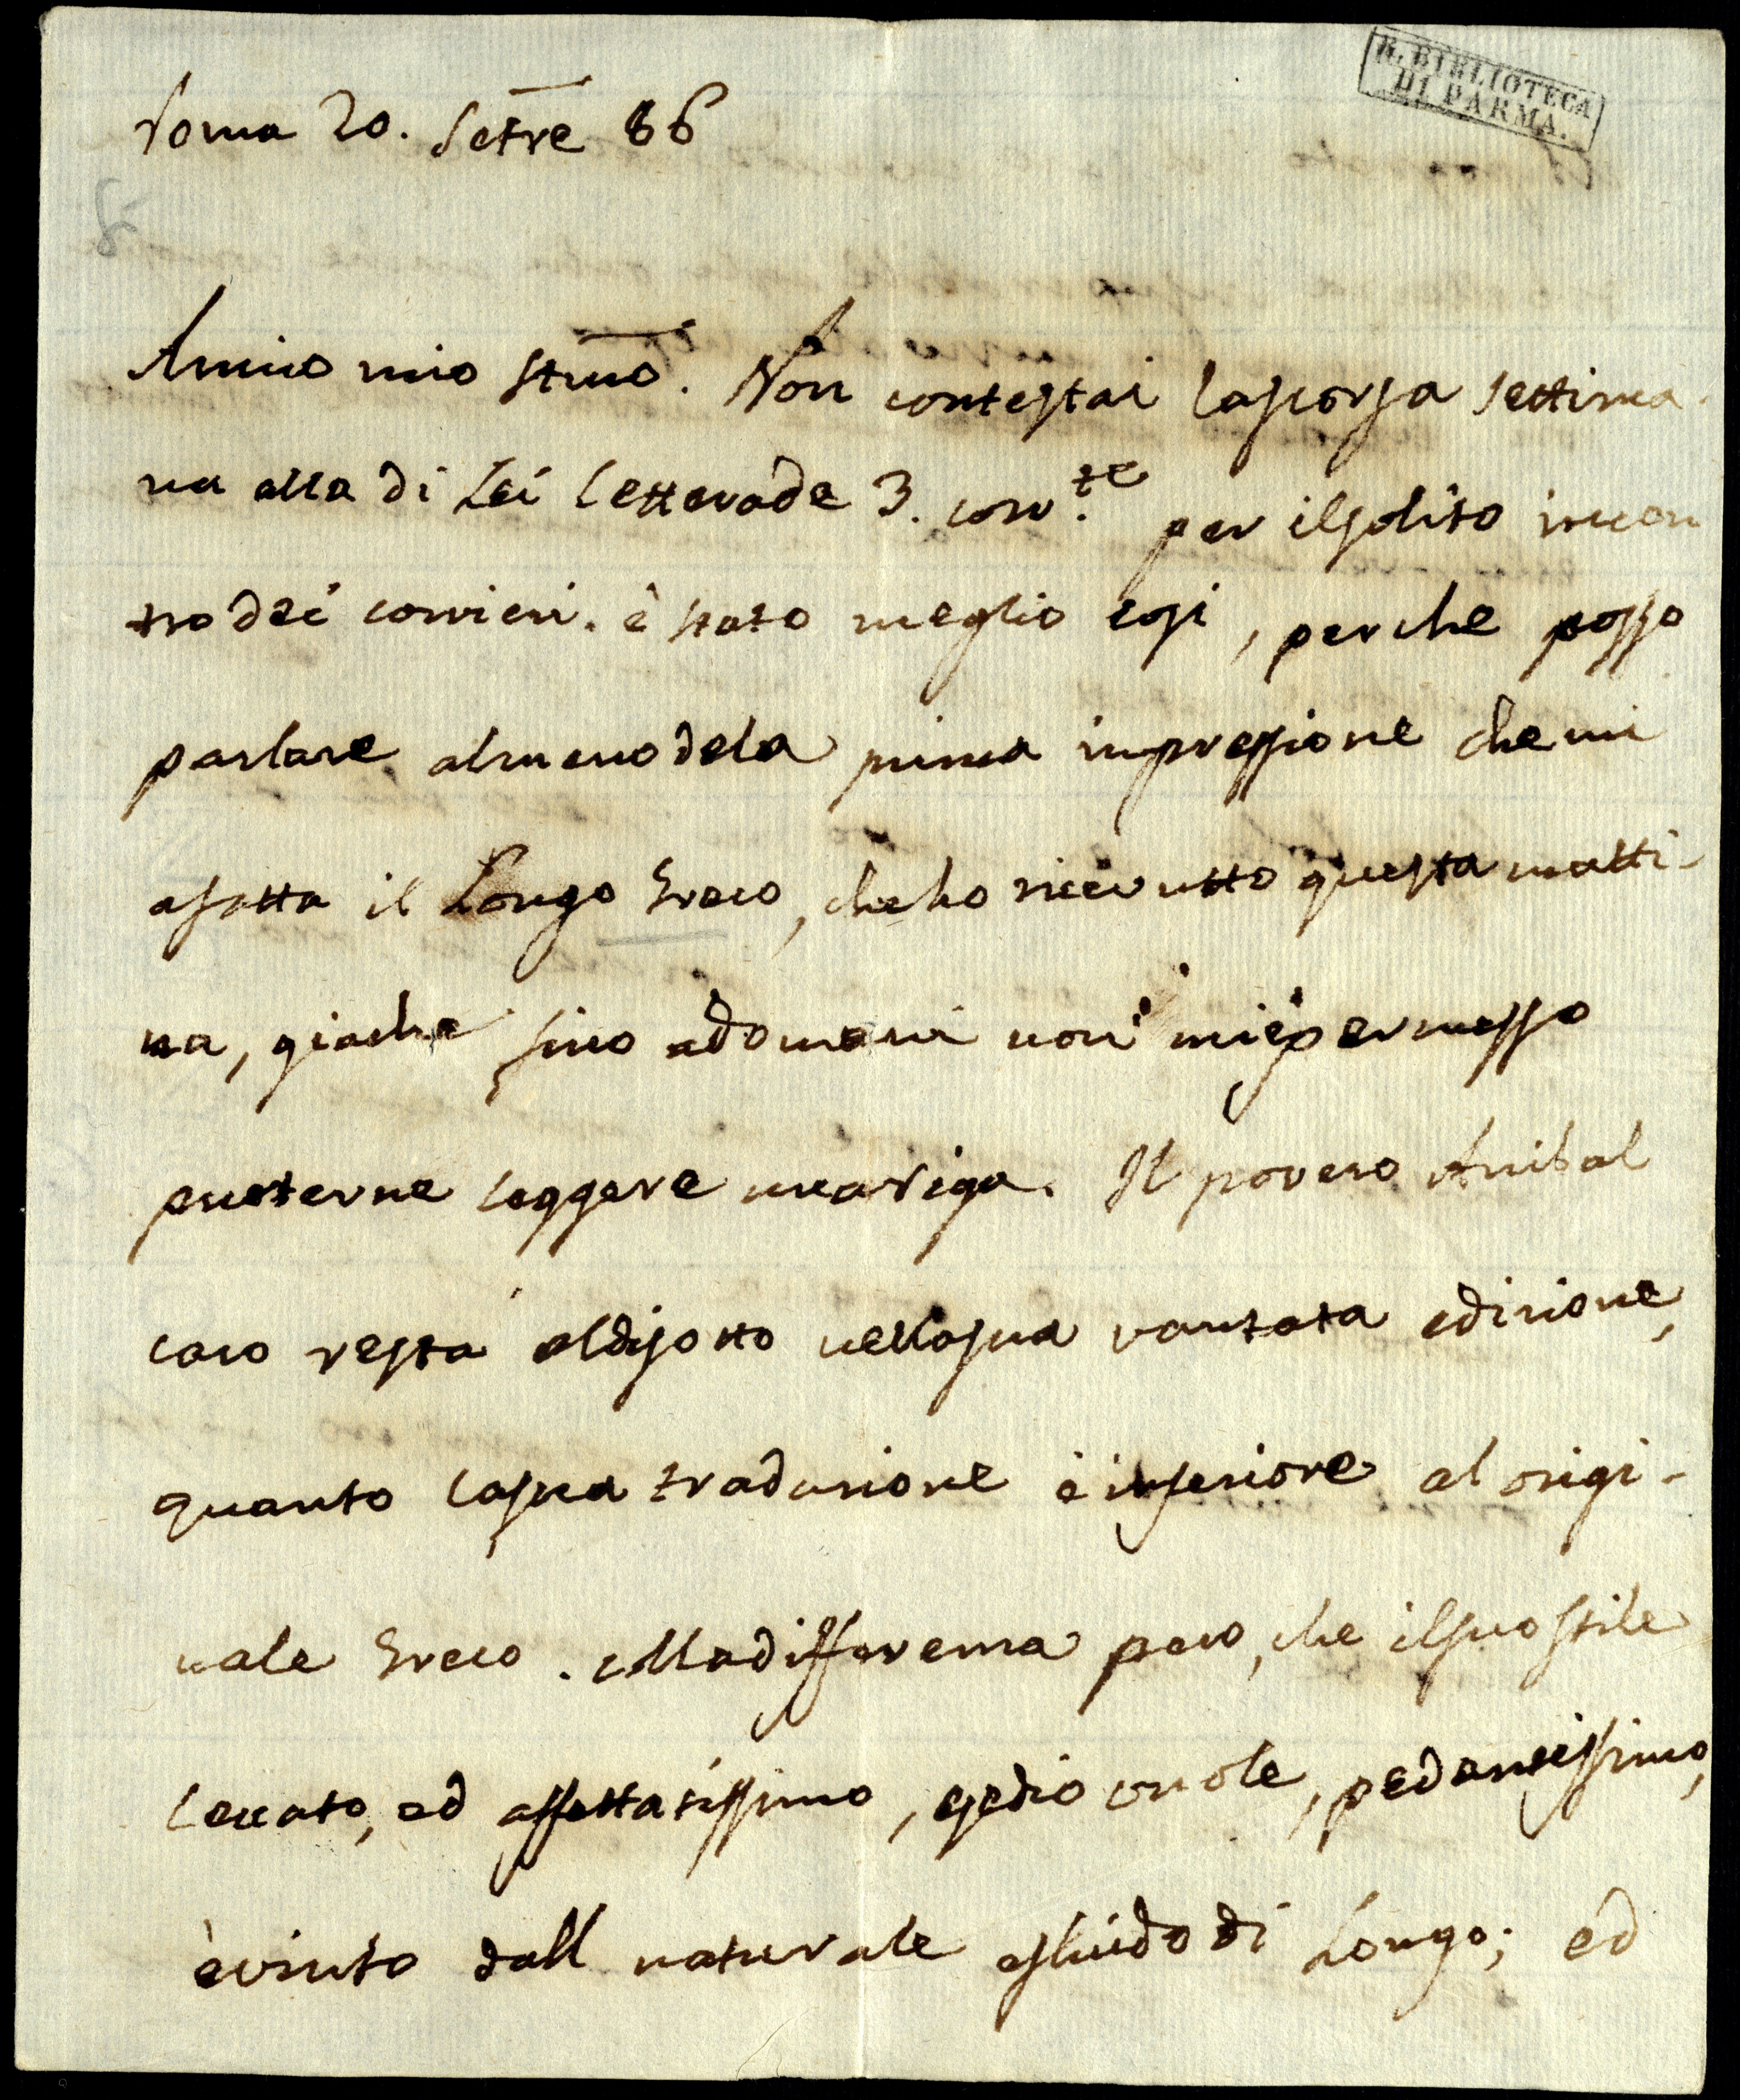 R. BIBLIOTECA
DI PARMA.
Roma 20. Setre 86
Amico mio stmo. Non contestai la scorsa settima-
na alla di Lei lettera de 3. corr.te per il solito incon
tro dei corrieri. è stato meglio cosi, perche posso
parlare almeno dela prima impressione che mi
a fatta il Longo Greco, che ho ricevutto questa matti-
na, giache fino a domani non mi è permesso
puoterne leggere una riga. Il povero Anibal
caro resta al disotto nella sua vantata edizione,
quanto la sua traduzione è inferiore al origi-
nale Greco. colla differenza pero, che il suo stile
leccato, ed affettatissimo, pedantissimo,
è vinto dall naturale e fluido di Longo; ed